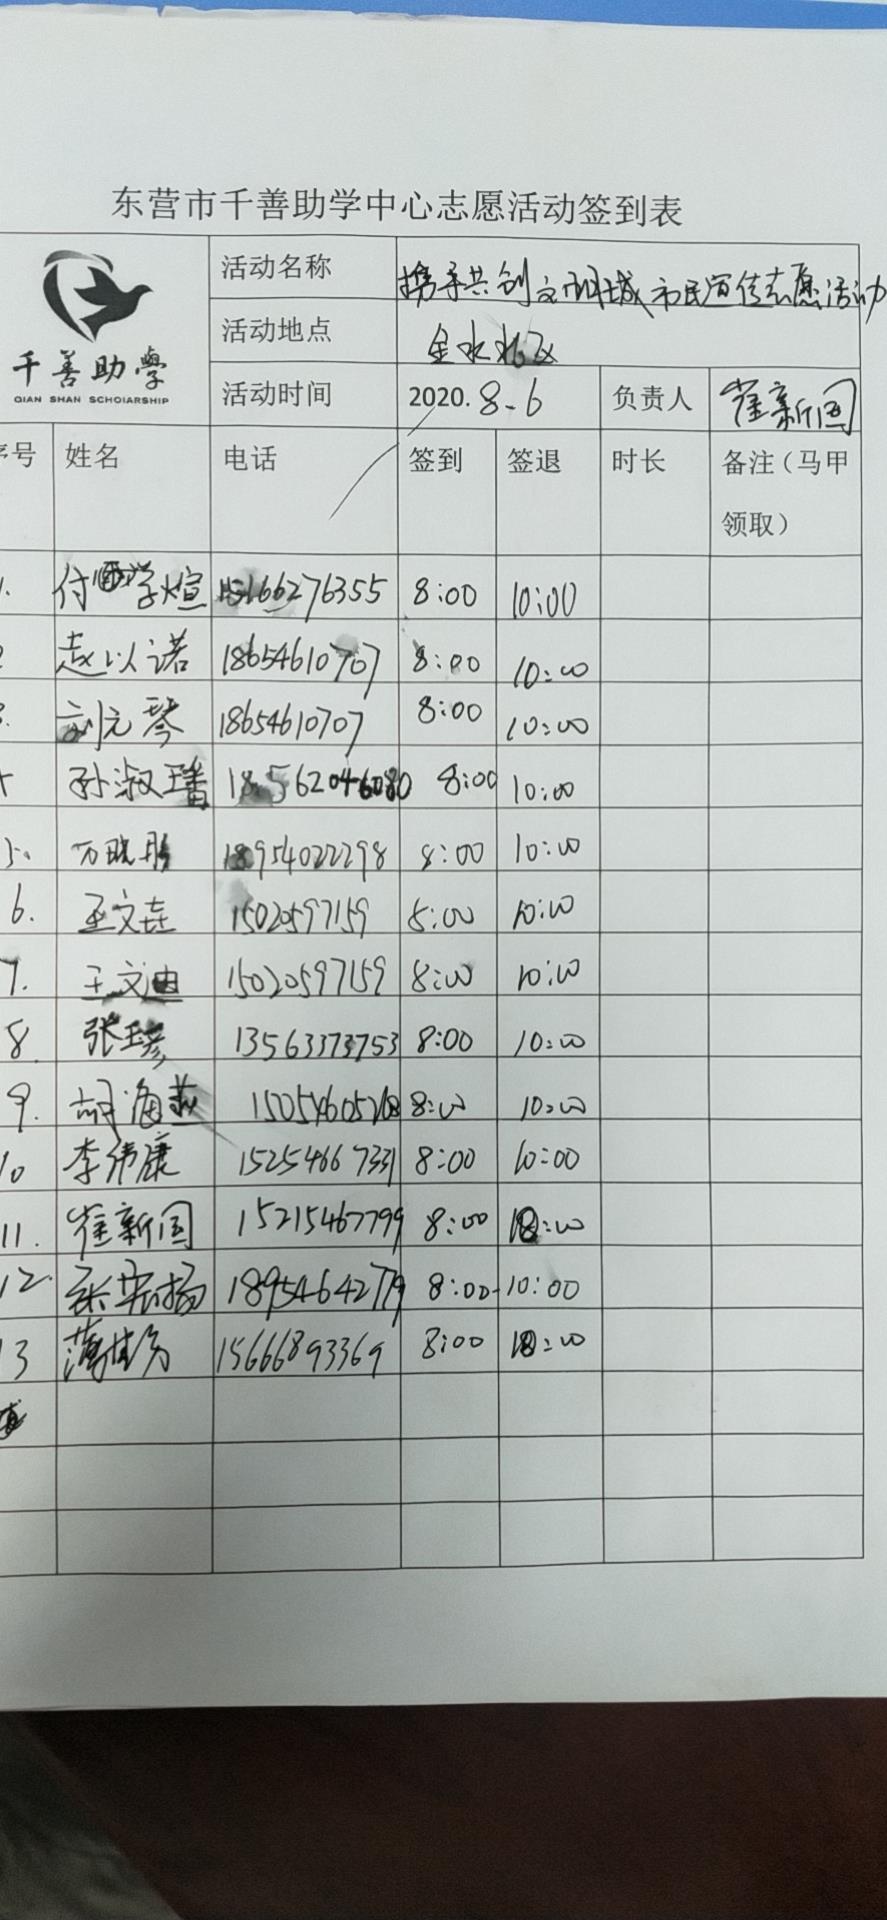 东营市千善助学中心志愿活动签到表
千善助學
QIAN SHAN SCHOLARSHIP
活动名称 携手共创文明城市民宣传志愿活动
活动地点 金水北区
活动时间 2020.8-6 负责人 崔新国
序号 姓名 电话 签到 签退 时长 备注（马甲领取）
1. 付学煊 15166276355 8:00 10:00
2 赵以诺 18654610707 8:00 10:00
3. 刘元琴 18654610707 8:00 10:00
孙淑璠 18562046080 8:00 10:00
5. 万晓彤 18954022298 8:00 10:00
6. 王文垚 15020597159 8:00 10:00
7. 王文迪 15020597159 8:00 10:00
8. 张 13563373753 8:00 10:00
9. 胡海燕 15054605268 8:00 10:00
10 李伟康 15254667331 8:00 10:00
11. 崔新国 15215467799 8:00 10:00
12. 8:00 10:00
13 薄 15666893369 8:00 10:00